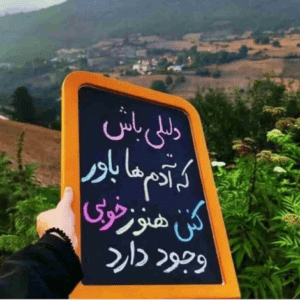 دلیلی باش
که آدم ها باور
کنن هنوز خوبی
وجود دارد